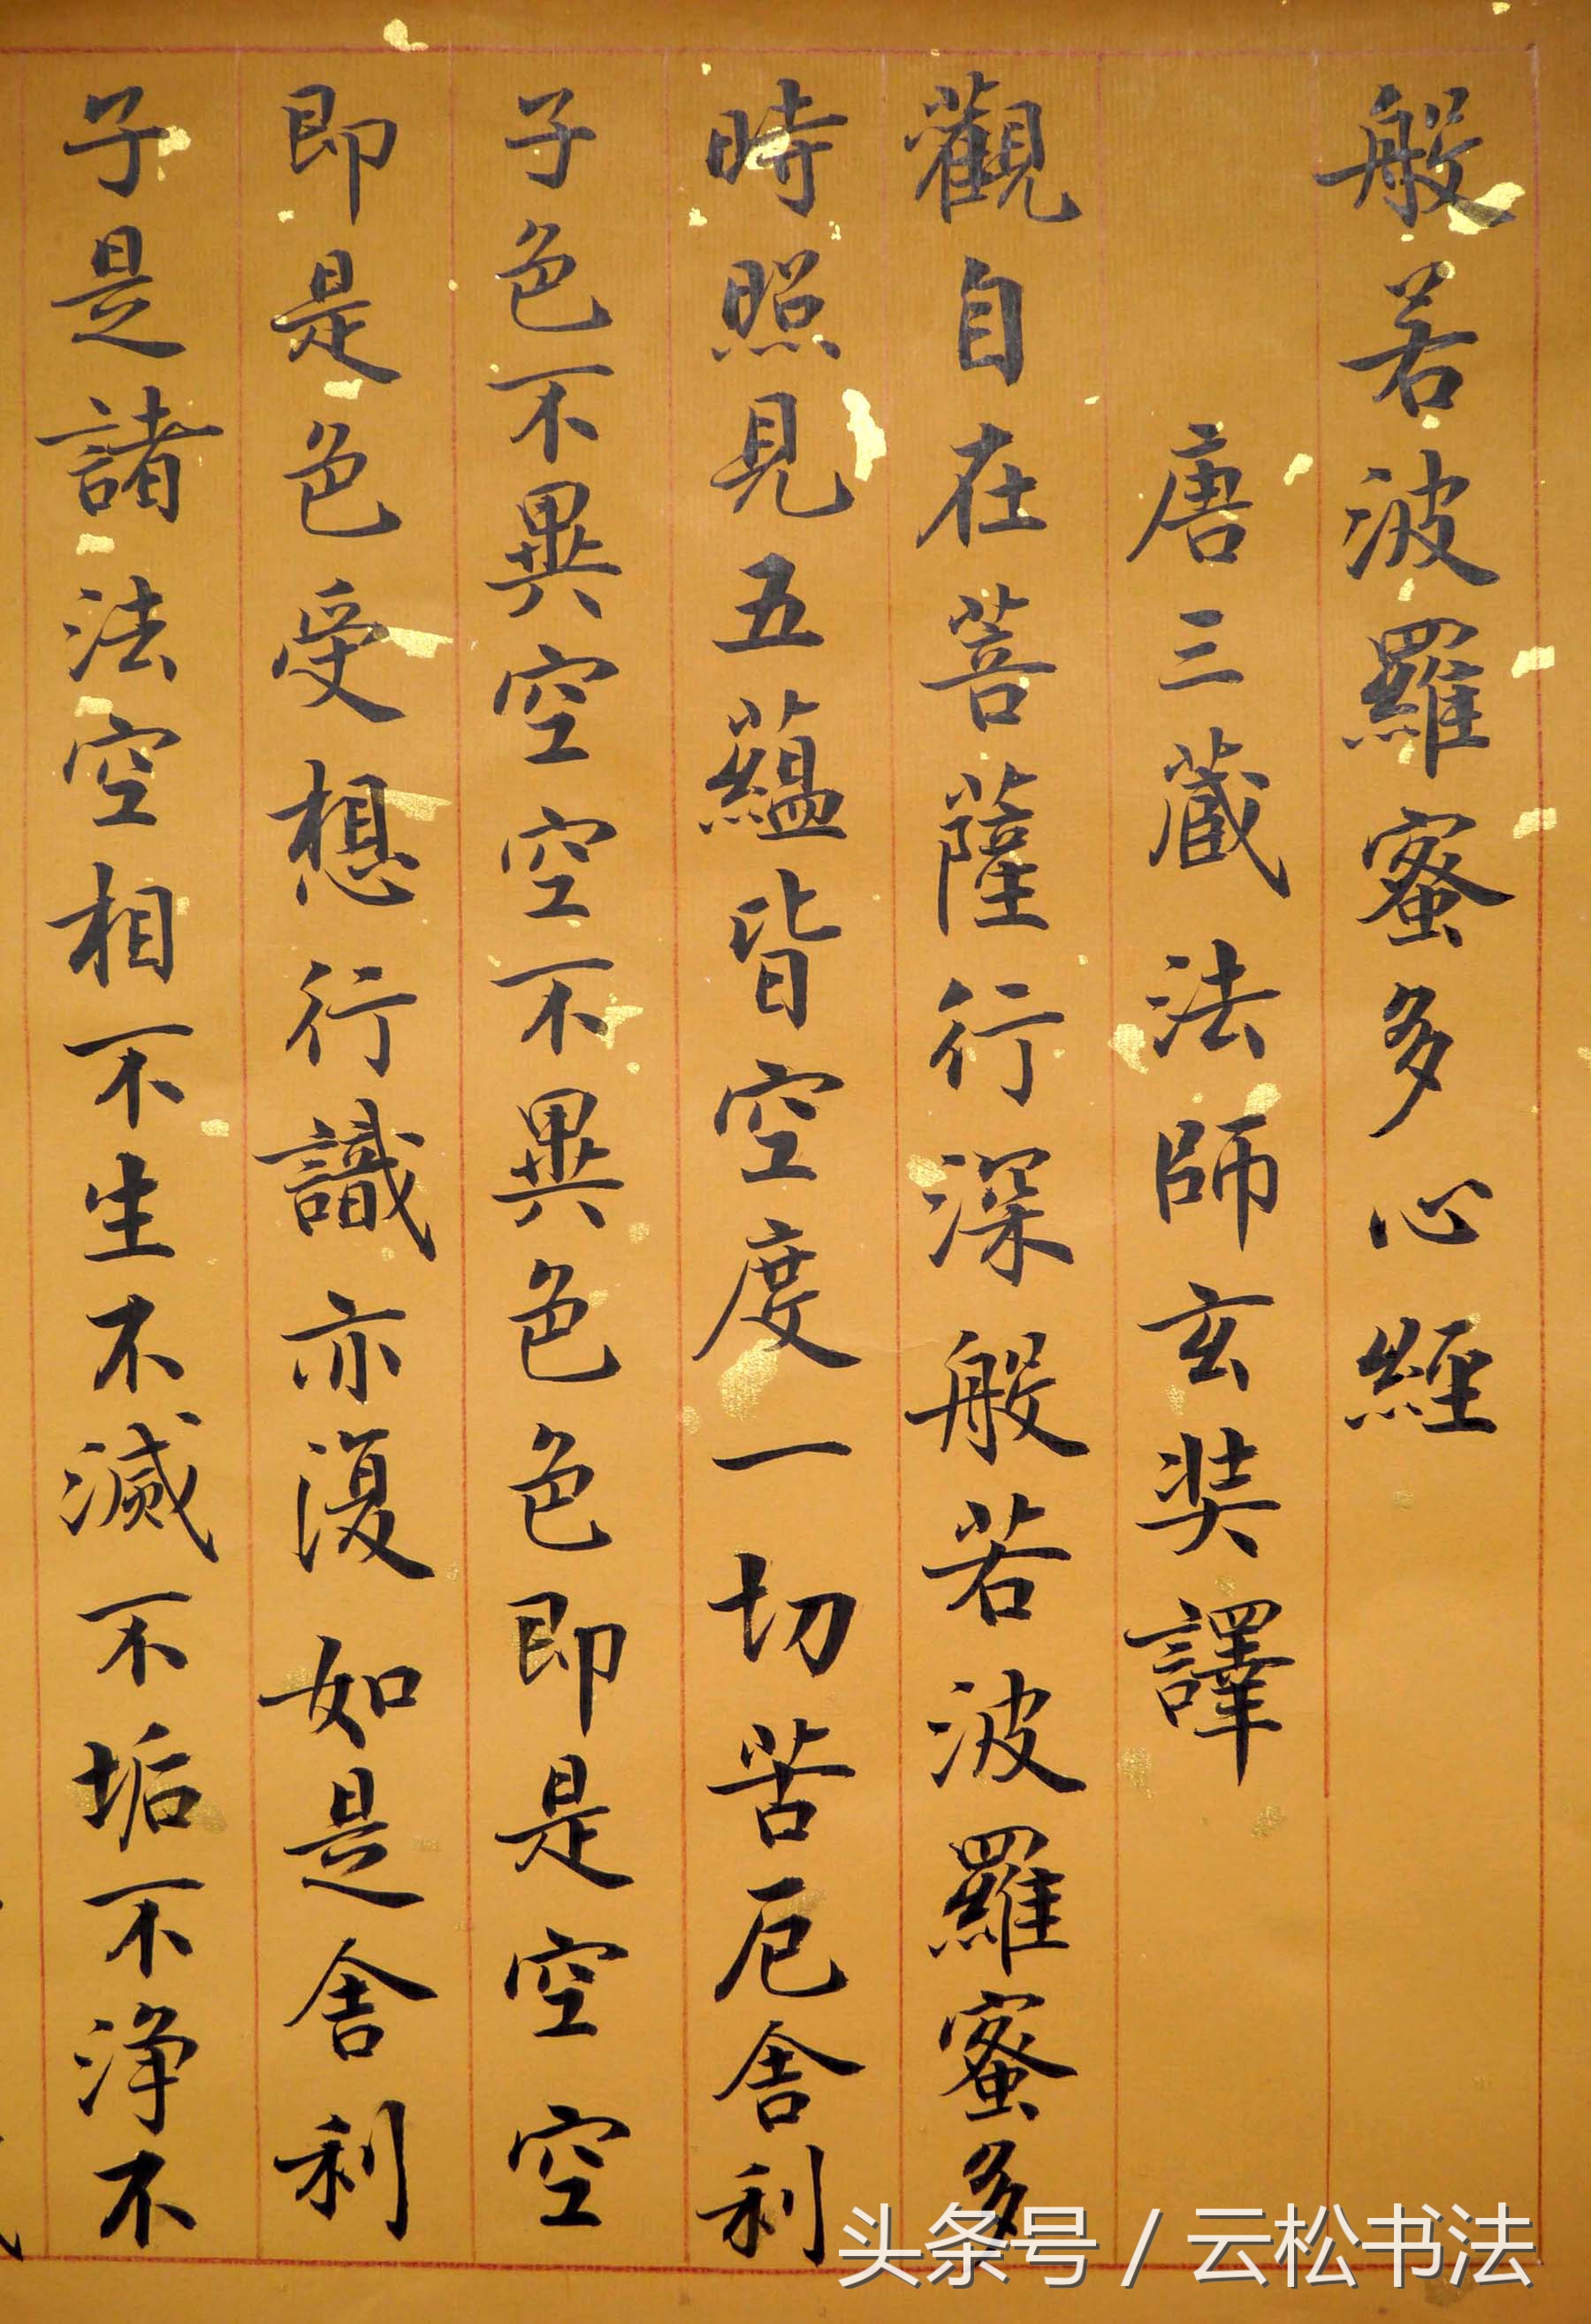 般若波羅蜜多心經
唐三藏法師玄奘譯
觀自在菩薩行深般若波羅蜜多
時照見五蘊皆空度一切苦厄舍利
子色不異空空不異色色即是空空
即是色受想行識亦復如是舍利
子是諸法空相不生不滅不垢不淨不
头条号 / 云松书法